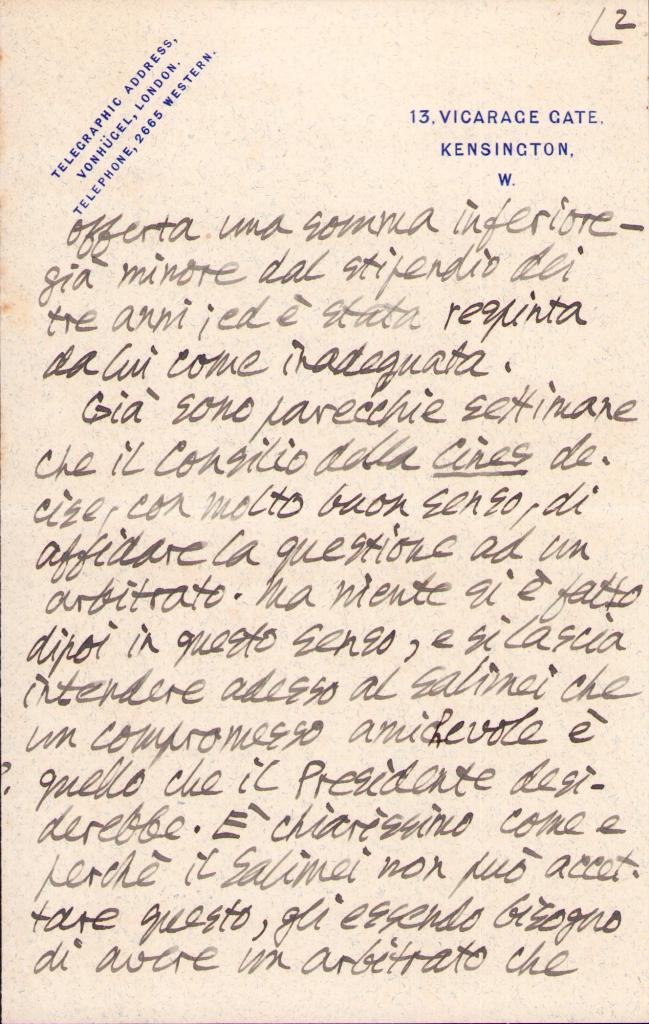 2
TELEGRAPHIC ADDRESS,
VONHÜGEL, LONDON.
TELEPHONE, 2665 WESTERN.
13, VICARAGE GATE,
KENSINGTON,
W.
offerta una somma inferiore –
già minore dal stipendio dei
tre anni; ed è stata respinta
da lui come inadeguata.
Già sono parecchie settimane
che il Consilio della Cines de-
cise, con molto buon senso, di
affidare la questione ad un
arbitrato. Ma niente si è fatto
dipoi in questo senso, e si lascia
intendere adesso al Salimei che
un compromesso amichevole è
quello che il Presidente desi-
derebbe. È chiarissimo come e
perchè il Salimei non può accet-
tare questo, gli essendo bisogno
di avere un arbitrato che